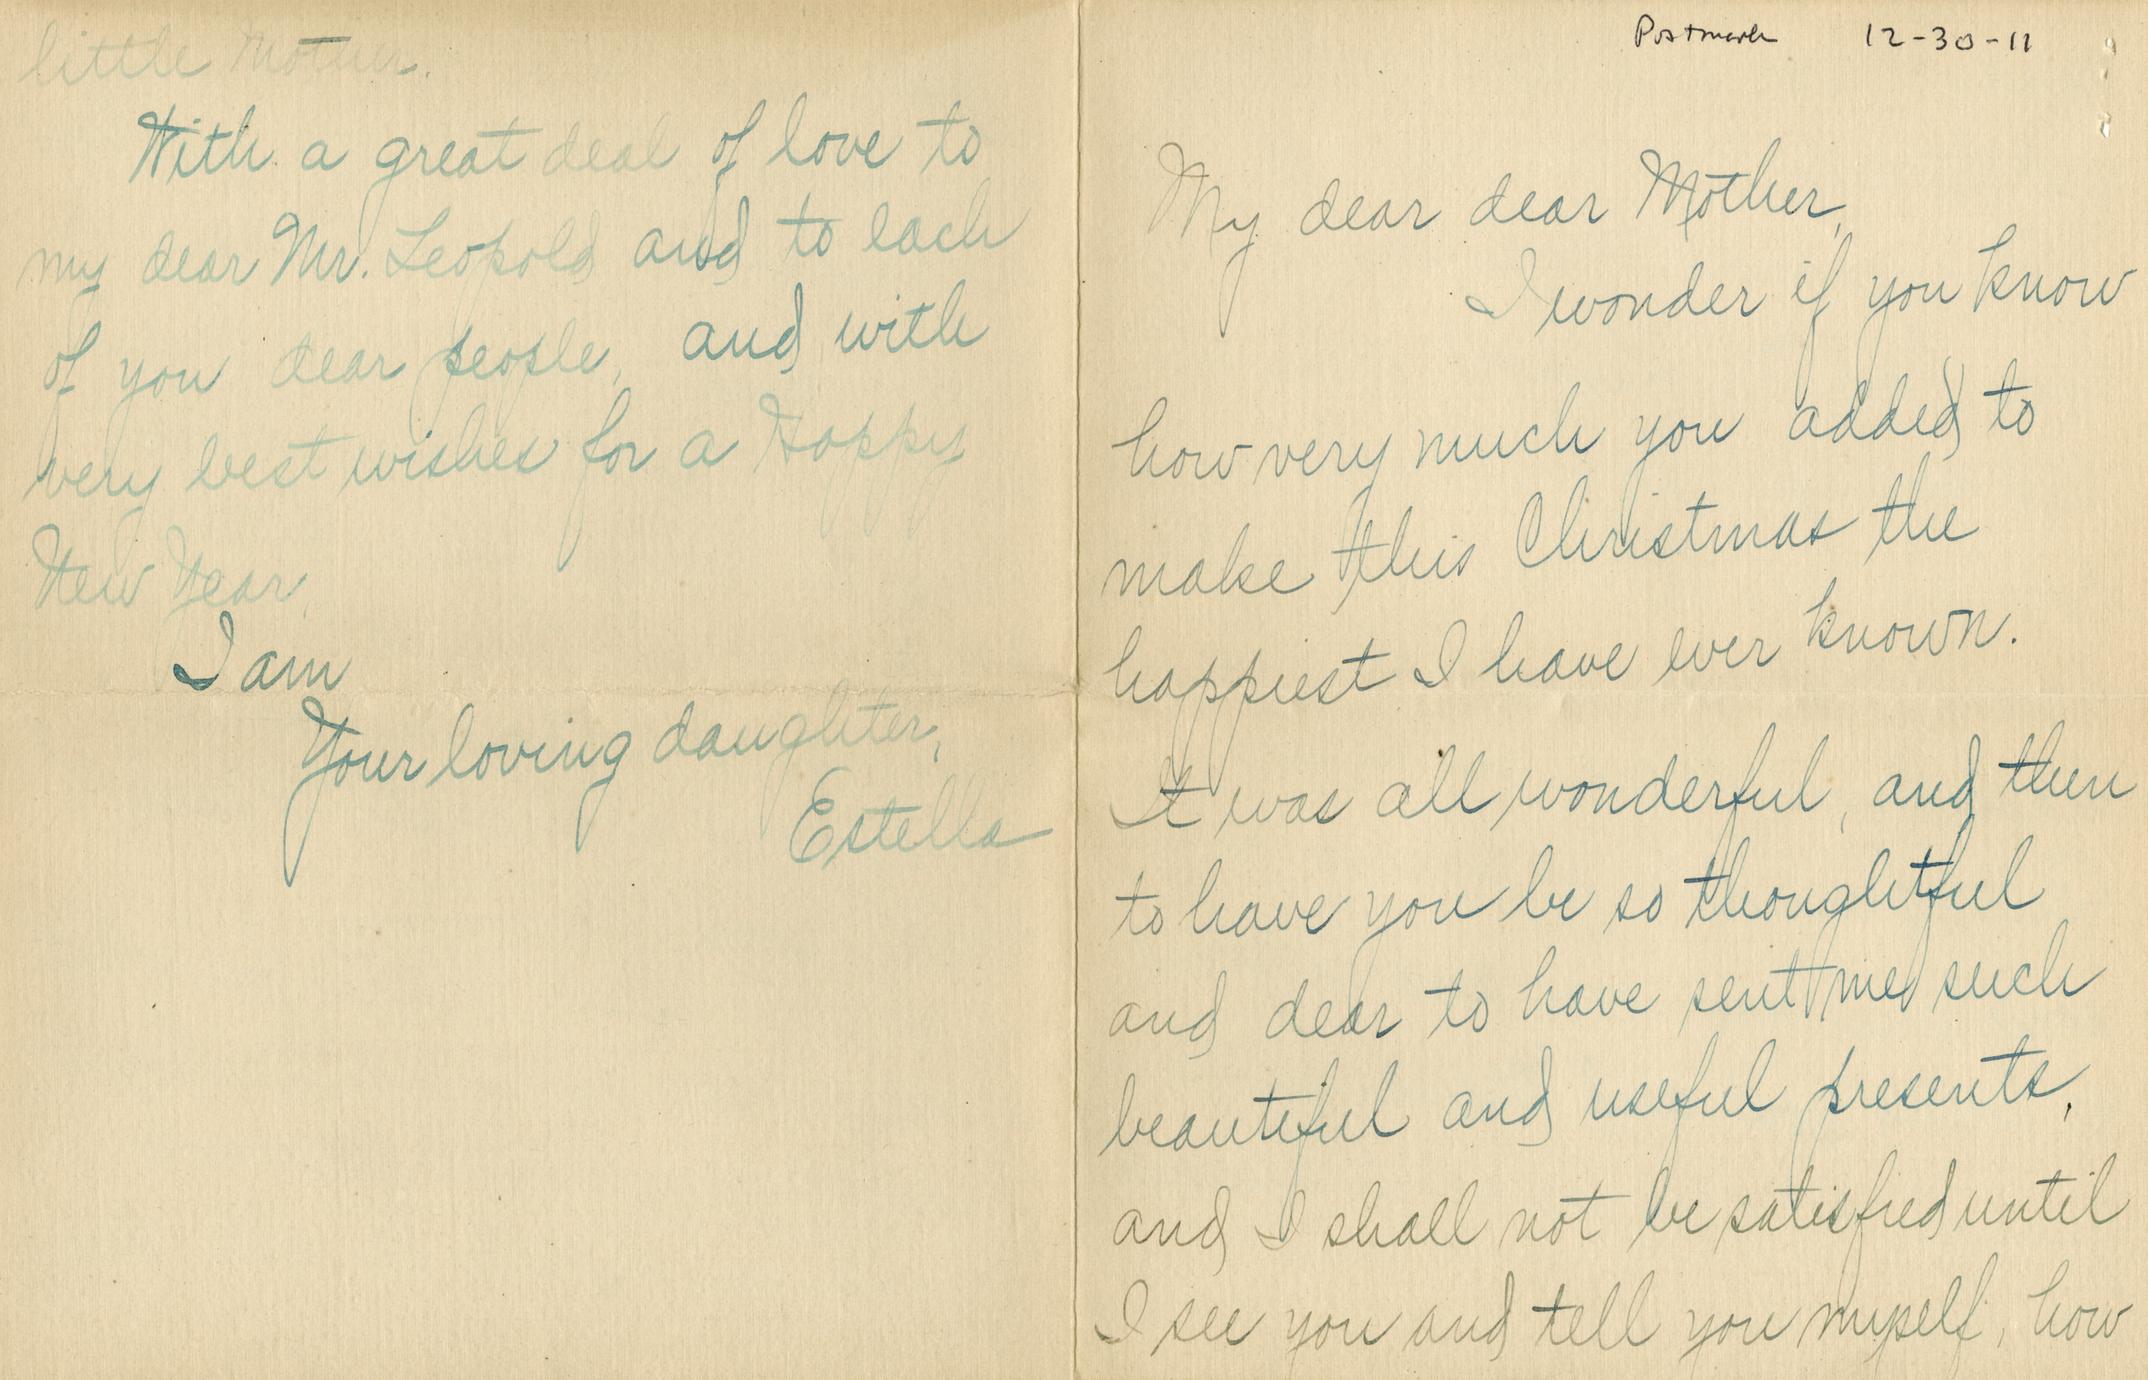 Postmark 12-30-11
My dear dear Mother,
I wonder if you know
how very much you added to
make this Christmas the
happiest I have ever known.
It was all wonderful, and then
to have you be so thoughtful
and dear to have sent me such
beautiful and useful presents,
and I shall not be satisfied until
I see you and tell you myself, how
little Mother.
With a great deal of love to
my dear Mr. Leopold and to each
of you dear people, and with
very best wishes for a Happy
New Year,
I am
Your loving daughter,
Estella